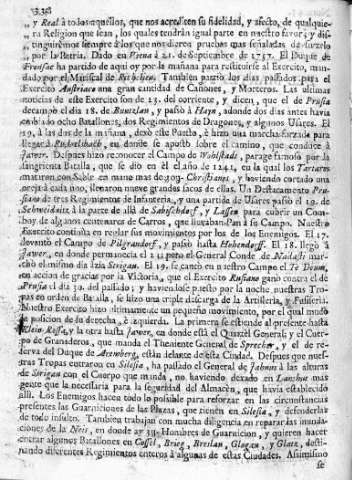 338
y Real à todos aquellos, que nos acrediten su fidelidad, y afecto, de qualquie-
ra Religion que sean, los quales tendrán igual parte en nuestro favor; y dis-
tinguirémos siempre à los que nos dieren pruebas mas señaladas de
por la Patria. Dado en Viena à 21. de Septiembre de 1757. El Duque de
ha partido de aqui oy por la mañana para restituirse al Exercito, man-
dado por el Mariscal de Richelieu. Tambien partió los dias passados para el
Exercito Austriaco una gran cantidad de Cañones, y Morteros. Las ultimas
noticias de este Exercito son de 23. del corriente, y dicen, que el de Prusia
decampó el dia 18. de Buntzlau, y passó à Hayn, adonde dos dias antes havia
embiado ocho Batallones, dos Regimientos de Dragones, y algunos Usares. El
19, à las dos de la mañana, dexó este Puesto, è hizo una marcha forzada para
llegar à en donde se apostó sobre el camino, que conduce à
Jawer. Despues hizo reconocer el Campo de Wohlstadt, parage famoso por la
sangrienta Batalla, que se dió en él el año de 1241, en la qual los Tartaros
mataron con Sable en mano mas de 30y. Christianos, y haviendo cortado una
oreja à cada uno, llenaron nueve grandes sacos de ellas. Un Destacamento Pru-
siano de tres Regimientos de Infanteria, y una partida de Usares passó el 19. de
Schweidnitz à la parte de allá de y Lassen para cubrir un Com-
boy de algunos centenares de Carros, que llevaban Pan à su Campo. Nuestro
Exercito continúa en reglar sus movimientos por los de los Enemigos. El 17.
levantó el Campo de Pilgrandorf, y passó hasta Hohendorff. El 18. llegó à
Jawer, en donde permanecia el 21; pero el General Conde de Nadasti mar-
chó el mismo dia àzia Strigau. El 19. se cantó en nuestro Campo el Te Deum,
en accion de gracias por la Victoria, que el Exercito Rusiano ganó contra el de
Prusia el dia 30. del passado; y haviendose puesto por la noche nuestras Tro-
pas en orden de Batalla, se hizo una triple descarga de la Artilleria, y Fusileria.
Nuestro Exercito hizo ultimamente un pequeño movimiento, por el qual mudó
de posicion de su derecha, è izquierda. La primera se estiende al presente hasta
Klein y la otra hasta Jawer, en donde está el Quartel General; y el Cuer-
po de Granaderos, que manda el Theniente General de Sprecher, y el de re-
serva del Duque de Aremberg, están delante de esta Ciudad. Despues que nues-
tras Tropas entraron en Silesia, ha passado el General de Jahnus à las alturas
de Strigau con el Cuerpo que manda, no haviendo dexado en Lanshut mas
gente que la necessaria para la seguridad del Almacèn, que havia establecido
allí. Los Enemigos hacen todo lo possible para reforzar en las circunstancias
presentes las Guarniciones de las Plazas, que tienen en Silesia, y defenderlas
de todo insulto. Tambien trabajan con mucha diligencia en reparar las inunda-
ciones de la Neis, en donde ay 3y. Hombres de Guarnicion, y quieren hacer
entrar algunos Batallones en Cossel, Brieg, Breslau, Glogau, y Glatz, desti-
nando diferentes Regimientos enteros à algunas de estas Ciudades. Assimismo
se